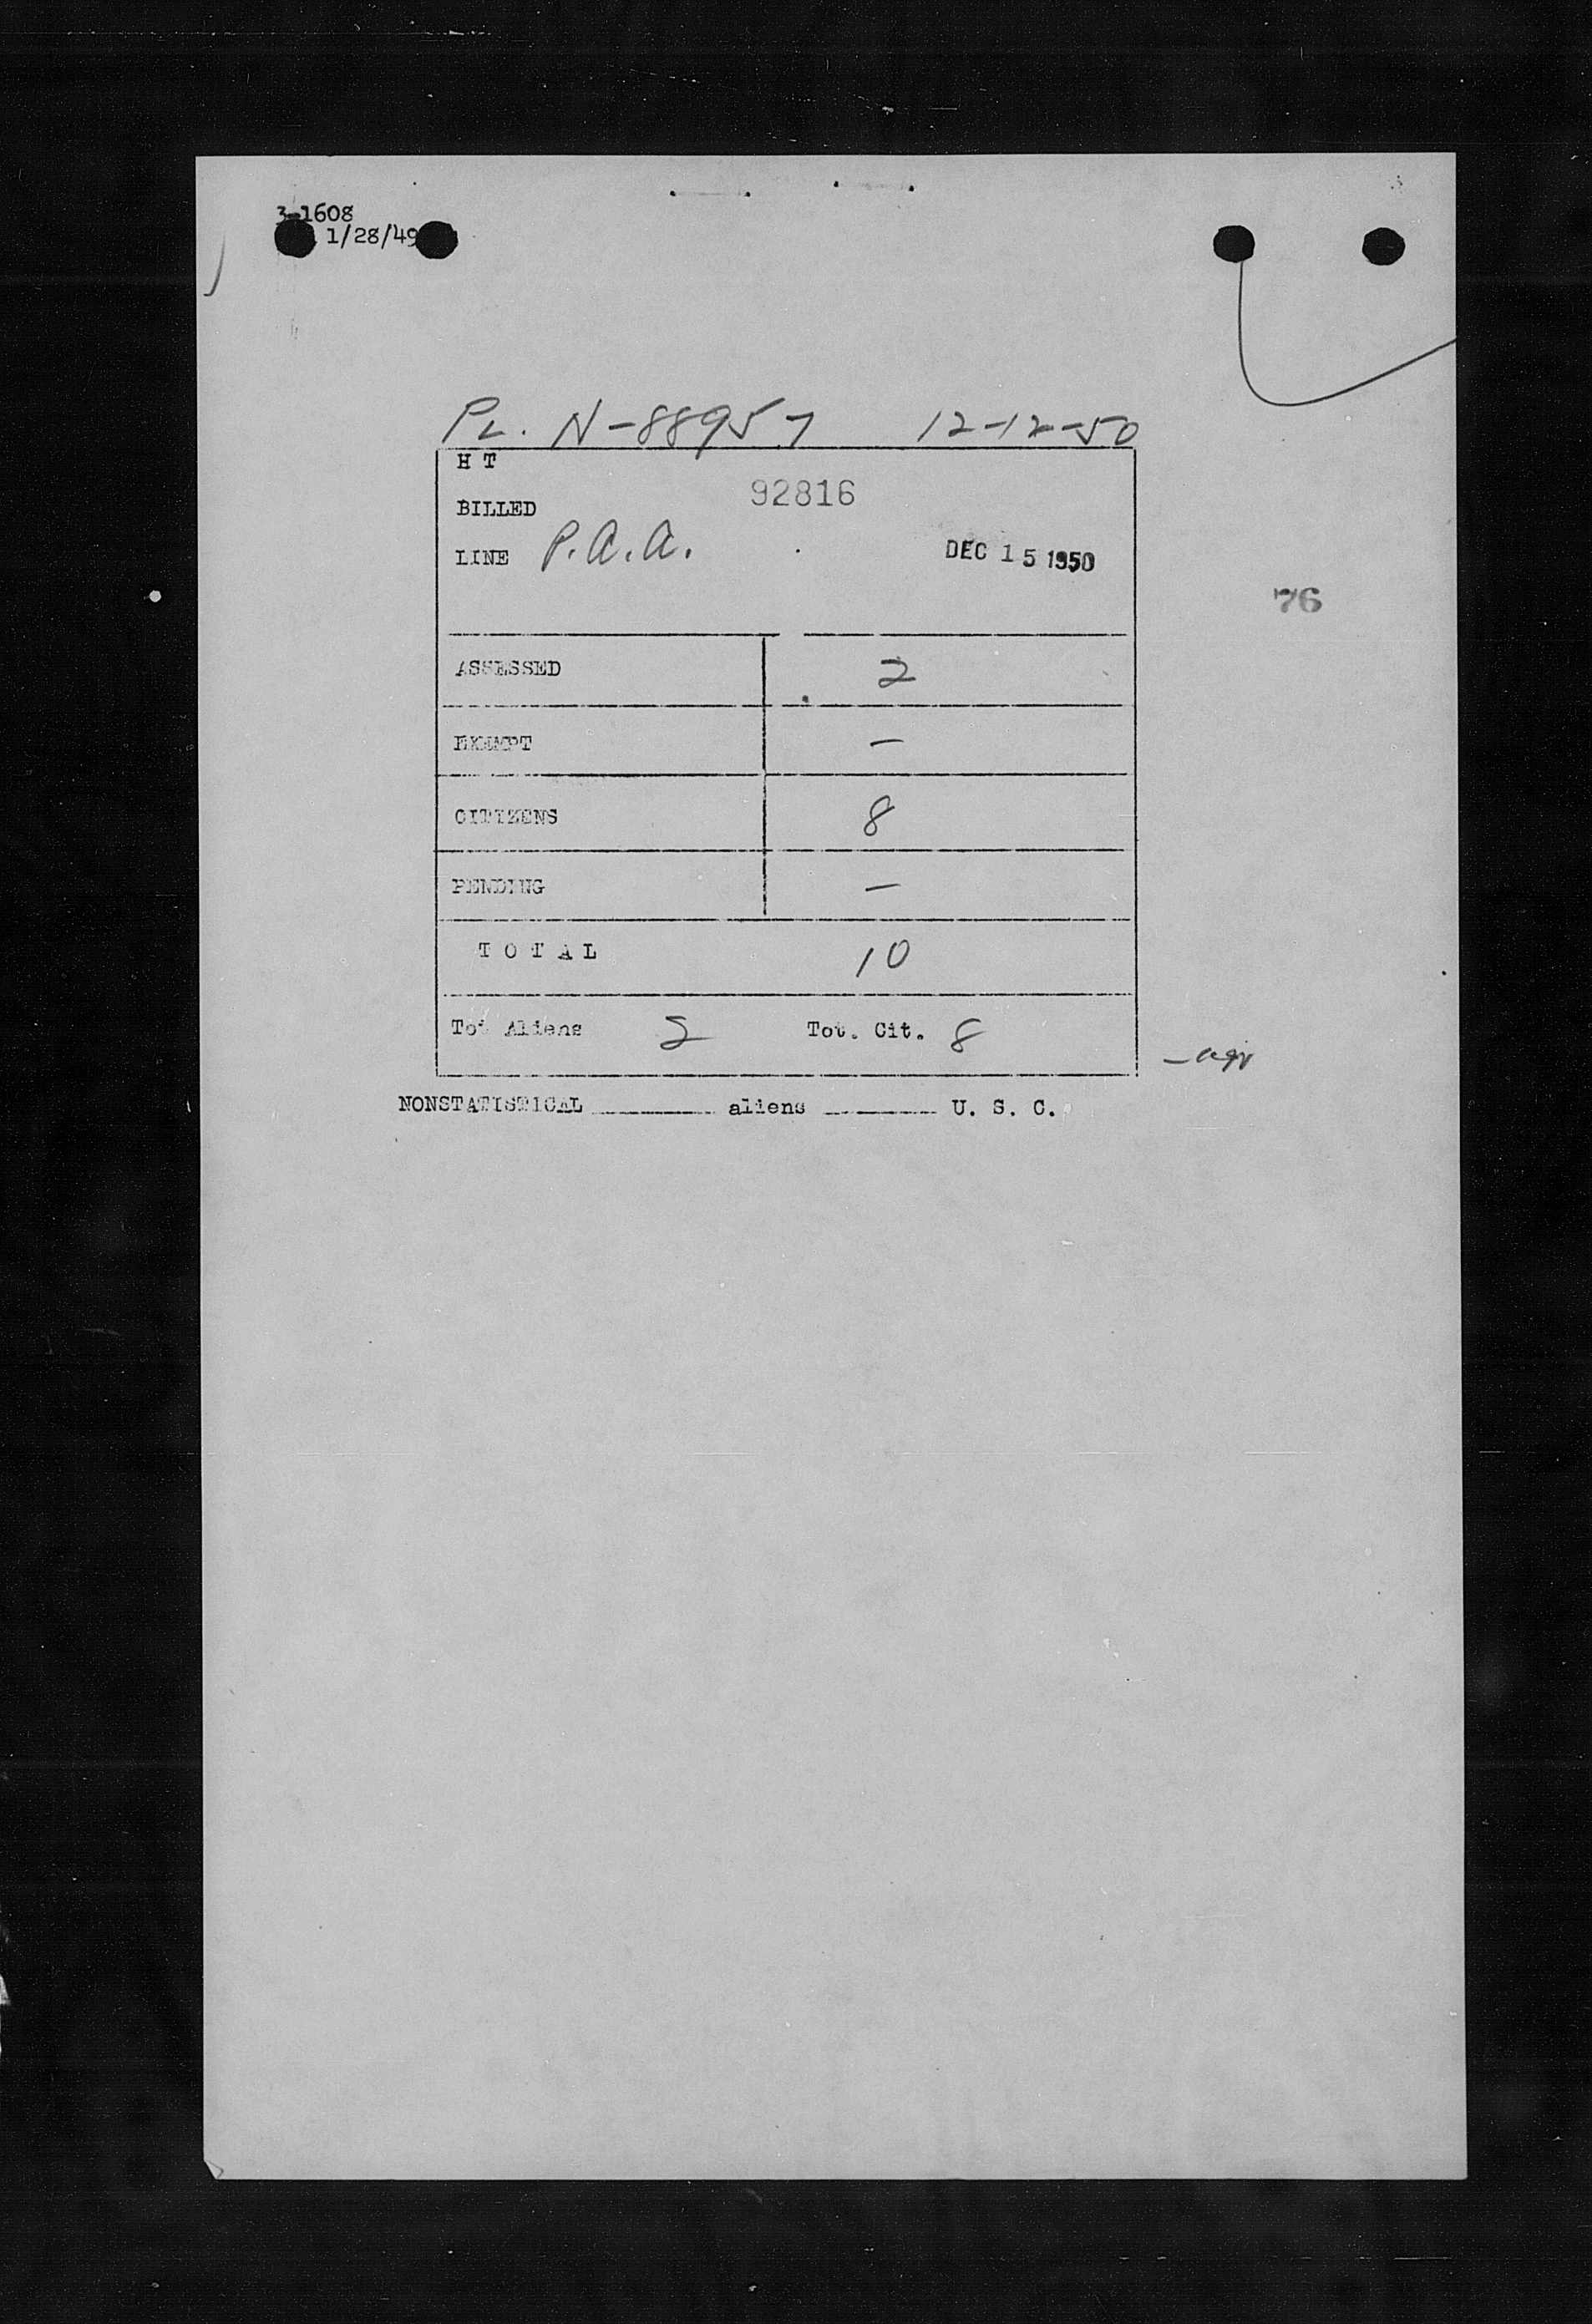 3-1608
1/28/49
PL. N-88957 12-12-50
H T
92816
BILLED
LINE P.A.A.
DEC 15 1950
76
ASSESSED 2
EXEMPT —
CITIZENS 8
PENDING —
T O T A L 10
Tot Aliens 2 Tot. Cit. 8
NONSTATISTICAL ______ aliens ______ U. S. C.